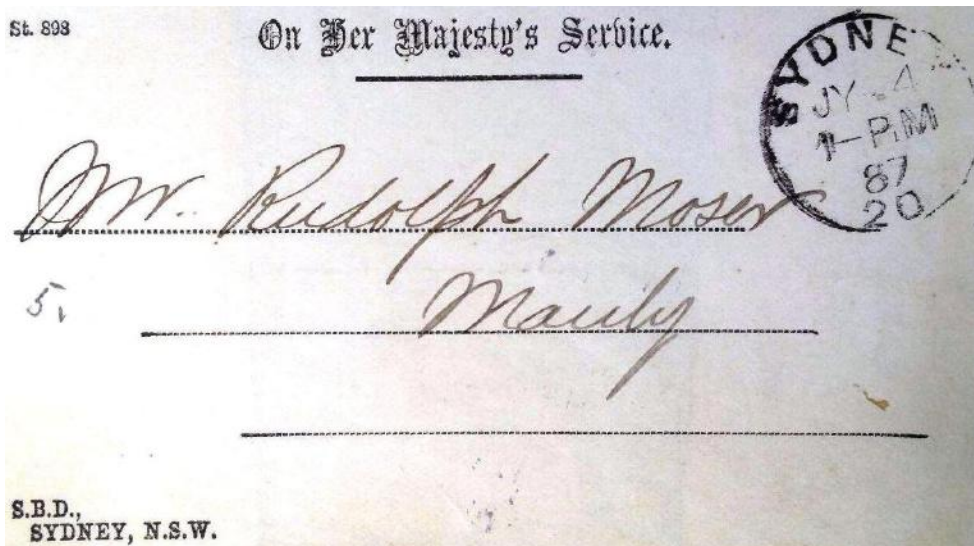 St. 898
On Her Majesty's Service.
SYDNEY
JY 4
1-P.M
87
20
Mr. Rudolph Moser
Manly
5.
S.B.D.,
SYDNEY, N.S.W.